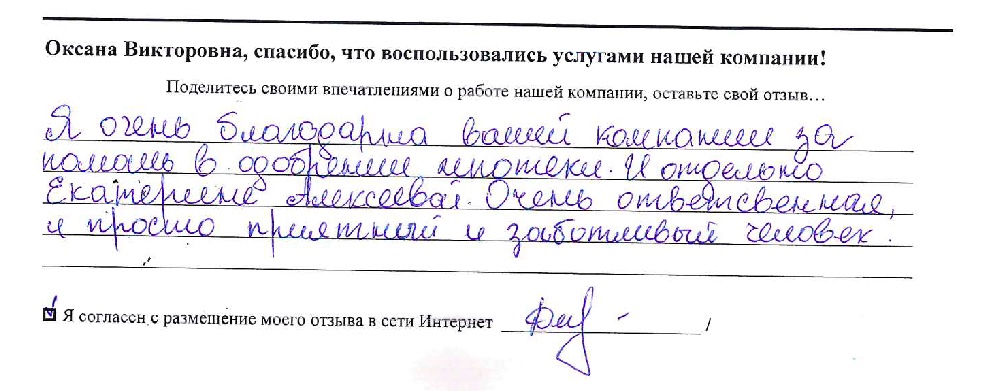 Оксана Викторовна, спасибо, что воспользовались услугами нашей компании!
Поделитесь своими впечатлениями о работе нашей компании, оставьте свой отзыв...
Я очень благодарна вашей компании за
помощь в одобрении ипотеки. И отдельно
Екатерине Алексеевой. Очень ответсвенная,
и просто приятный и заботливый человек.
Я согласен с размещение моего отзыва в сети Интернет